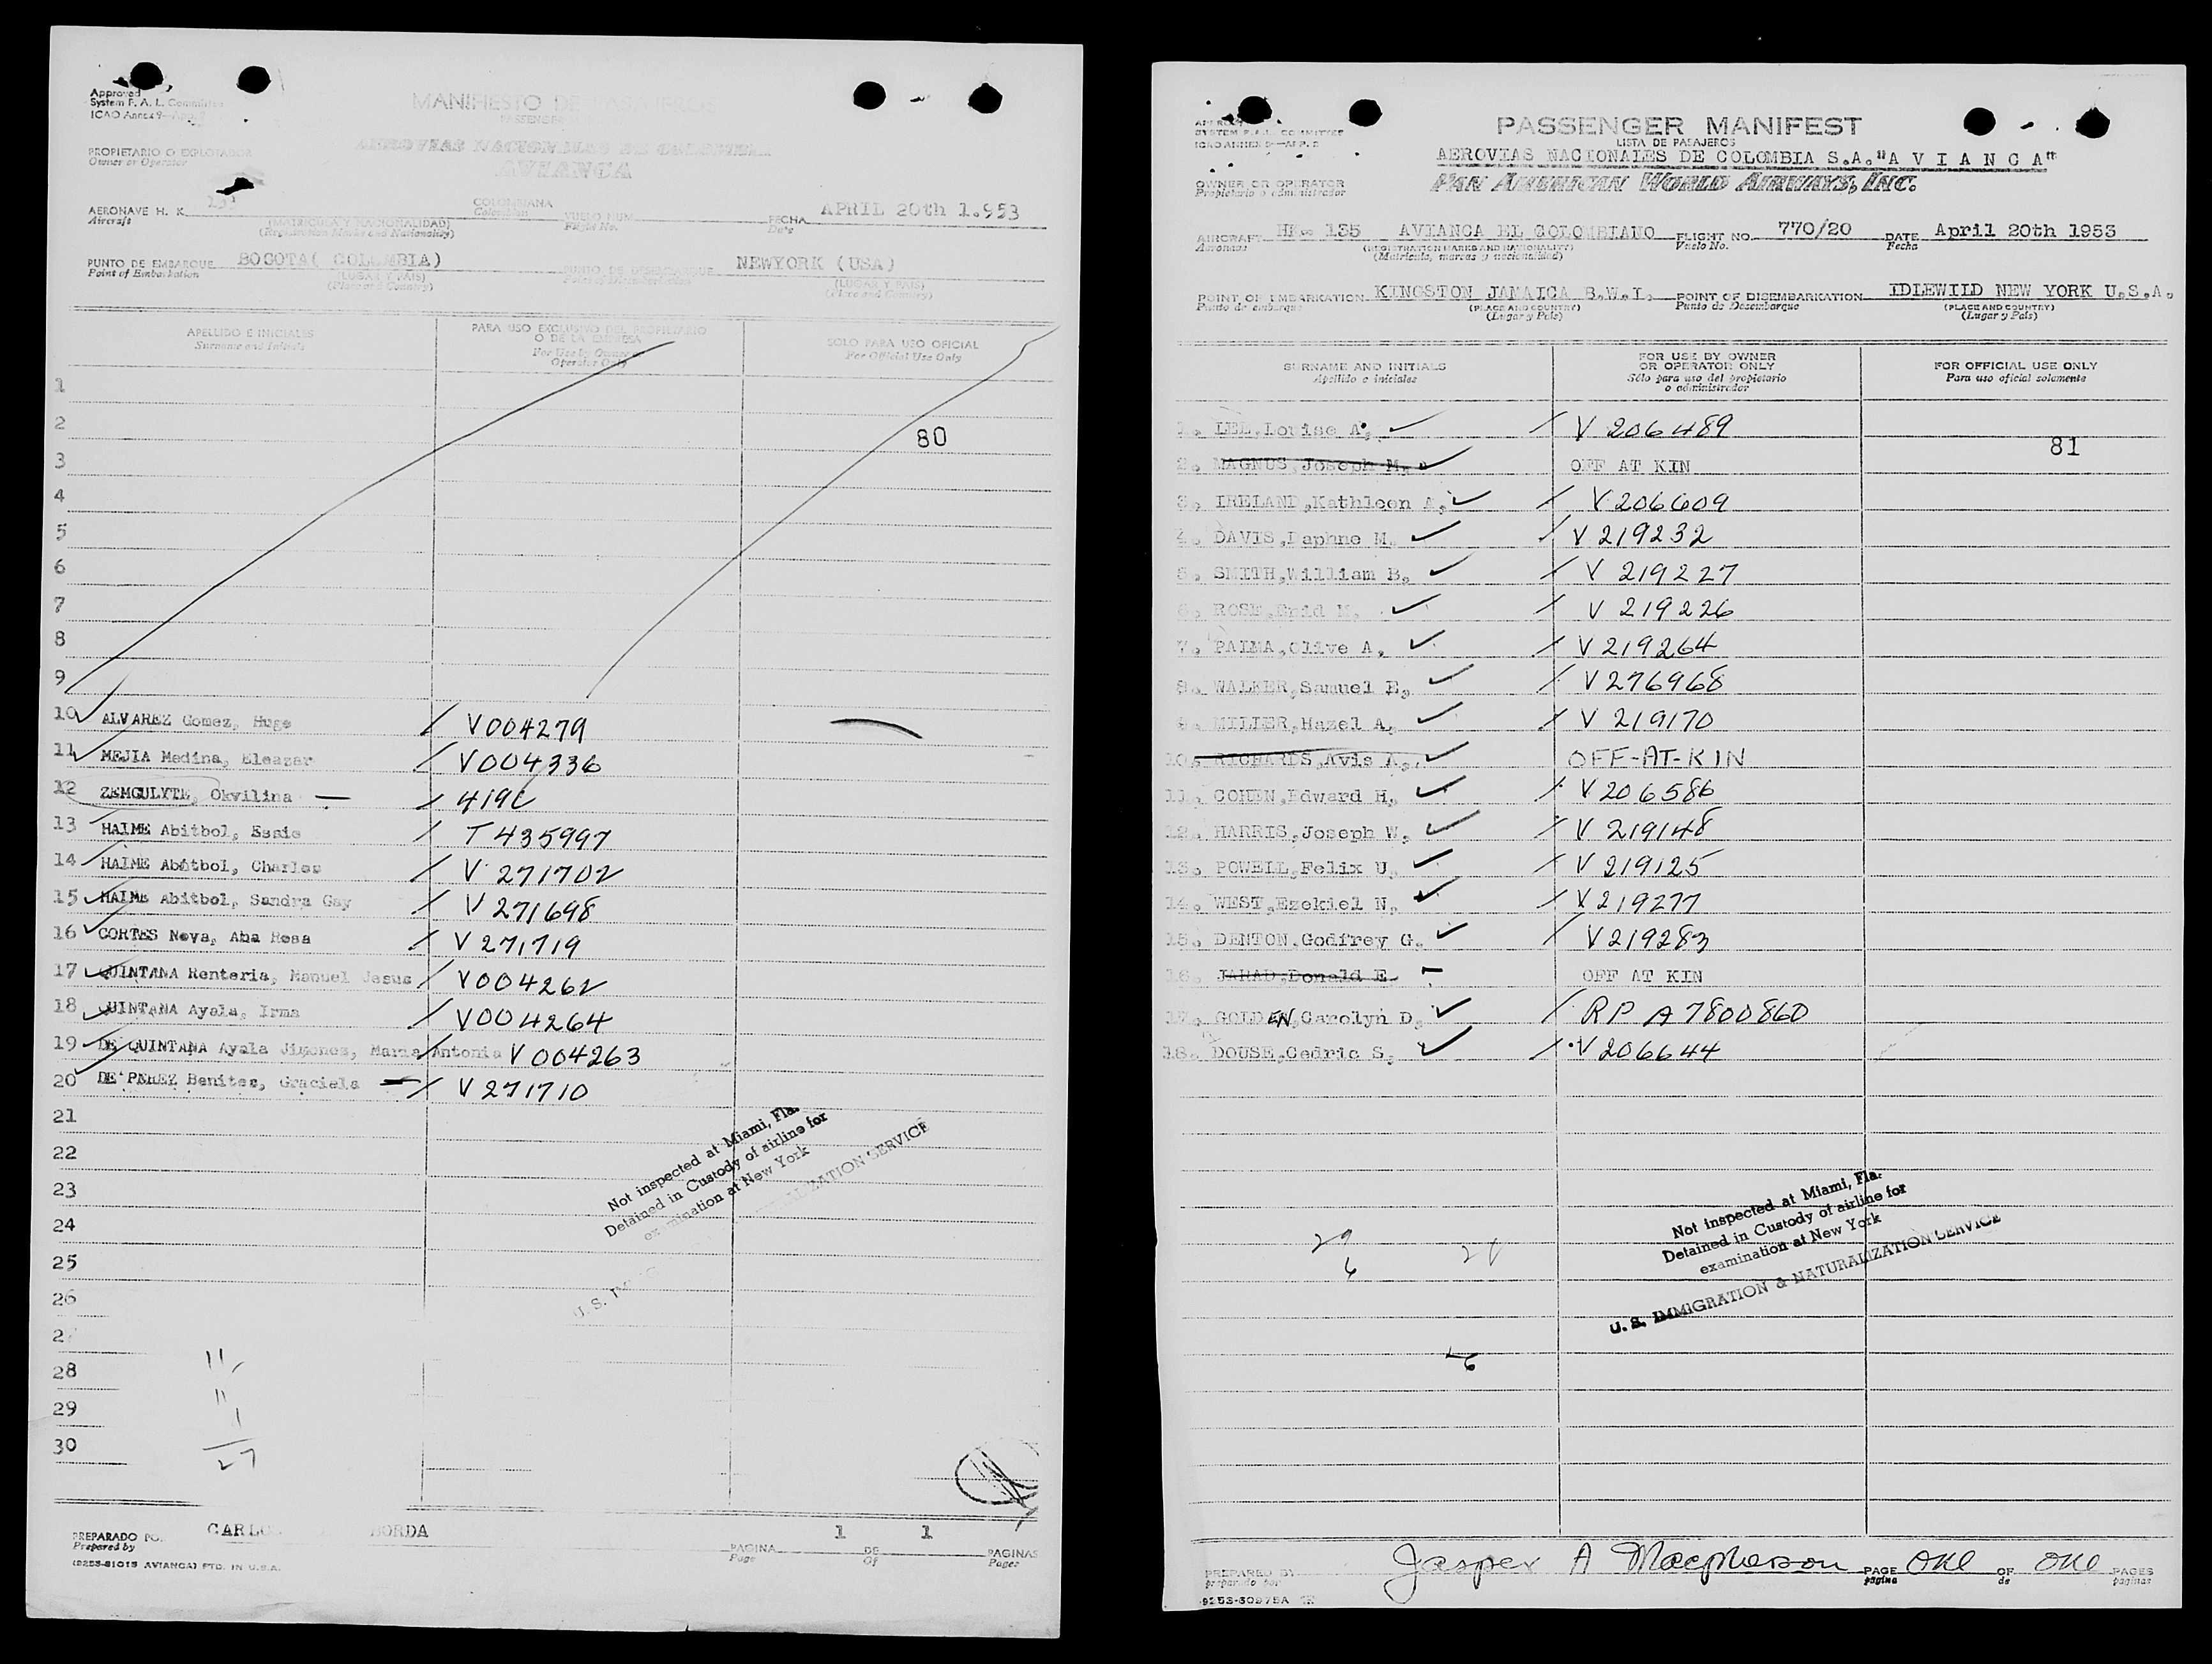 Approved
System F. A. L. Committee
ICAO Annex 9
MANIFIESTO DE PASAJEROS
PASSENGER
PROPIETARIO O EXPLOTADOR
Owner or Operator
AEROVIAS NACIONALES DE COLOMBIA
AVIANCA
AERONAVE H. K. COLOMBIANA VUELO NUM. FECHA APRIL 20th 1.953
Aircraft (MATRICULA Y NACIONALIDAD) Colombian Flight No. Date
(Registration Marks and Nationality)
PUNTO DE EMBARQUE BOGOTA( COLOMBIA) PUNTO DE DESEMBARQUE NEWYORK (USA)
Point of Embarkation (LUGAR Y PAIS) Point of Disembarkation (LUGAR Y PAIS)
(Place and Country) (Place and Country)
APELLIDO E INICIALES PARA USO EXCLUSIVO DEL PROPIETARIO SOLO PARA USO OFICIAL
Surname and Initials O DE LA EMPRESA For Official Use Only
For Use by Owner or
Operator Only
1
2 80
3
4
5
6
7
8
9
10 ALVAREZ Gomez, Hugo / V004279
11 MEJIA Medina, Eleazar / V004336
12 ZEMGULYTE, Okvilina — / 419C
13 HAIME Abitbol, Essie / T435997
14 HAIME Abitbol, Charles / V 271702
15 HAIME Abitbol, Sandra Gay / V 271698
16 CORTES Neva, Ana Rosa / V 271719
17 QUINTANA Renteria, Manuel Jesus / V004262
18 QUINTANA Ayala, Irma / V004264
19 DE QUINTANA Ayala Jimenez, Maria Antonia V 004263
20 DE PEREZ Benites, Graciela — / V 271710
21
22
23
24
25
26
2
28
29
30
Not inspected at Miami, Fla.
Detained in Custody of airline for
examination at New York
U. S. NATURALIZATION SERVICE
11
11
1
27
PREPARADO POR BORDA 1 1
Prepared by PAGINA DE PAGINAS
Page Of Pages
(9253-81015 AVIANCA) PTD. IN U.S.A.
SYSTEM F.A.L. COMMITTEE
ICAO ANNEX 9—APP. 2
PASSENGER MANIFEST
LISTA DE PASAJEROS
AEROVIAS NACIONALES DE COLOMBIA S.A."A V I A N C A"
OWNER OR OPERATOR PAN AMERICAN WORLD AIRWAYS, INC.
Propietario o administrador
AIRCRAFT HK- 135 AVIANCA EL COLOMBIANO FLIGHT NO. 770/20 DATE April 20th 1953
Aeronave (REGISTRATION MARKS AND NATIONALITY) Vuelo No. Fecha
(Matrícula, marcas y nacionalidad)
POINT OF EMBARKATION KINGSTON JAMAICA B.W.I. POINT OF DISEMBARKATION IDLEWILD NEW YORK U.S.A.
Punto de embarque (PLACE AND COUNTRY) Punto de Desembarque (PLACE AND COUNTRY)
(Lugar y País) (Lugar y País)
SURNAME AND INITIALS FOR USE BY OWNER FOR OFFICIAL USE ONLY
Apellido e iniciales OR OPERATOR ONLY Para uso oficial solamente
Sólo para uso del propietario
o administrador
1. LEE, Louise A. / V 206489
81
2. MAGNUS, Joseph M. OFF AT KIN
3. IRELAND, Kathleen A. / V206609
4. DAVIS, Daphne M. / V 219232
5. SMITH, William B. / V 219227
6. ROSE, Enid M. / V 219226
7. PALMA, Olive A. / V 219264
8. WALKER, Samuel E. / V 276968
9. MILLER, Hazel A. / V 219170
10. RICHARDS, Avis A. OFF-AT-KIN
11. COHEN, Edward H. / V 206586
12. HARRIS, Joseph W. / V 219148
13. POWELL, Felix U. / V 219125
14. WEST, Ezekiel N. / V 219277
15. DENTON, Godfrey G. / V 219283
16. JAHAD, Donald E. OFF AT KIN
17. GOLDEN, Carolyn D. / RP A7800860
18. DOUSE, Cedric S. / V 206644
Not inspected at Miami, Fla.
Detained in Custody of airline for
examination at New York
U. S. IMMIGRATION & NATURALIZATION SERVICE
PREPARED BY Jasper A Macpherson PAGE One OF One PAGES
preparado por página de páginas